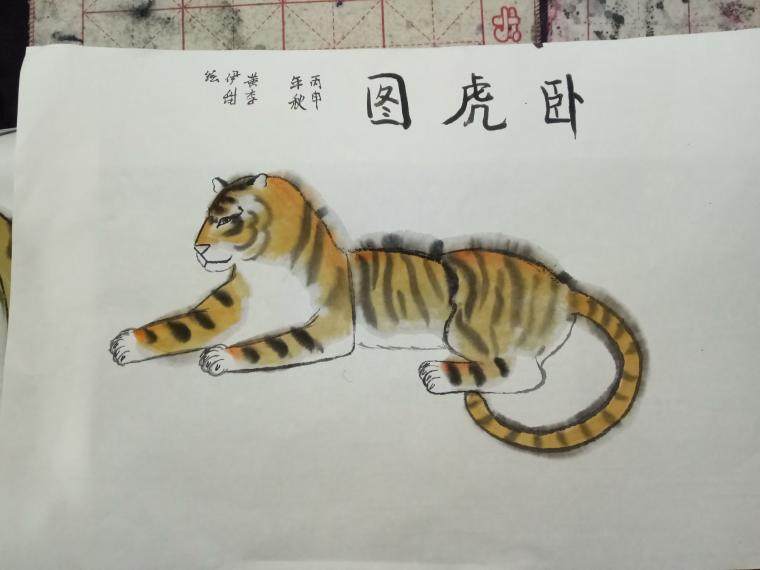 卧虎图
丙申
年秋
黄李
伊甜
绘